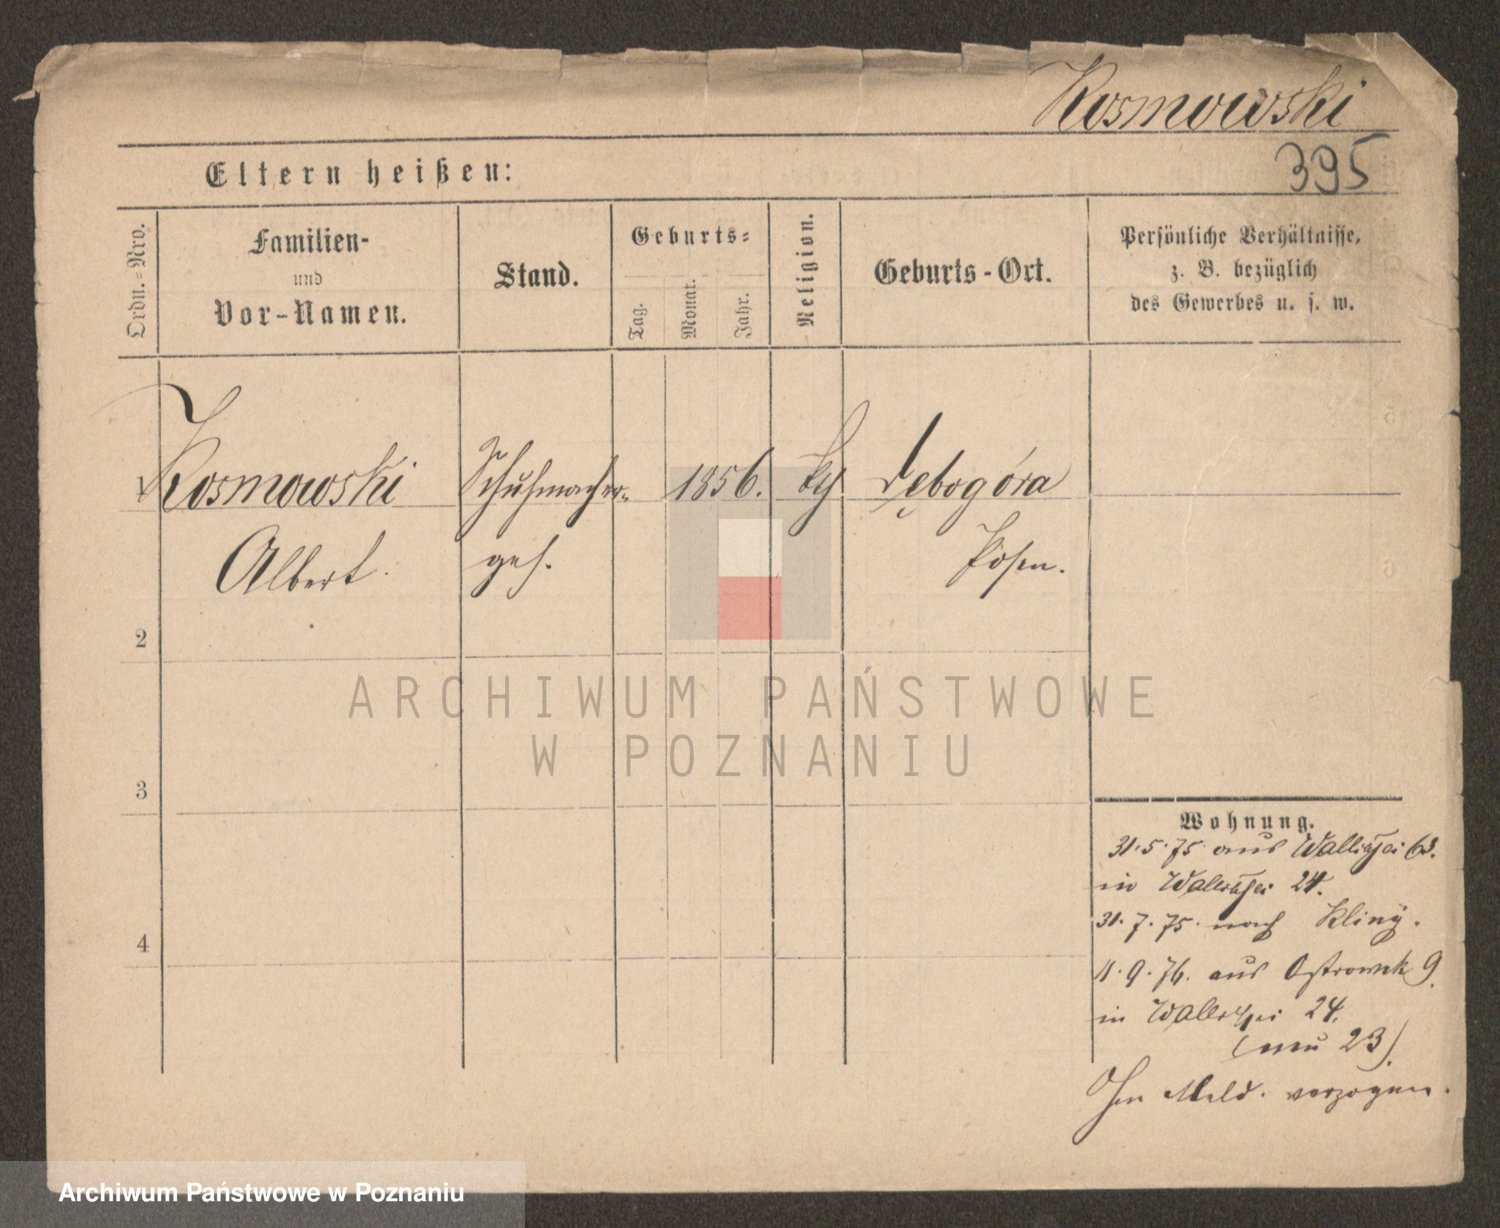 Kosmowski
395
Eltern heißen:
Ordn.=Nro.
Familien-
und
Vor-Namen.
Stand.
Geburts=
Tag.
Monat.
Jahr.
Religion.
Geburts-Ort.
Persönliche Verhältnisse,
z. B. bezüglich
des Gewerbes u. s. w.
1 Kosmowski Schuhmacher- 1856. Dębogóra
Albert. ges. Posen.
2
3
4
ARCHIWUM PAŃSTWOWE
W POZNANIU
Wohnung.
31.5.75. aus Wallischei 63.
in Wallischei 24.
31.7.75. nach
9.76. aus Ostrowek 9.
in Wallischei 24.
(neu 23).
Ohn Meld. verzogen.
Archiwum Państwowe w Poznaniu